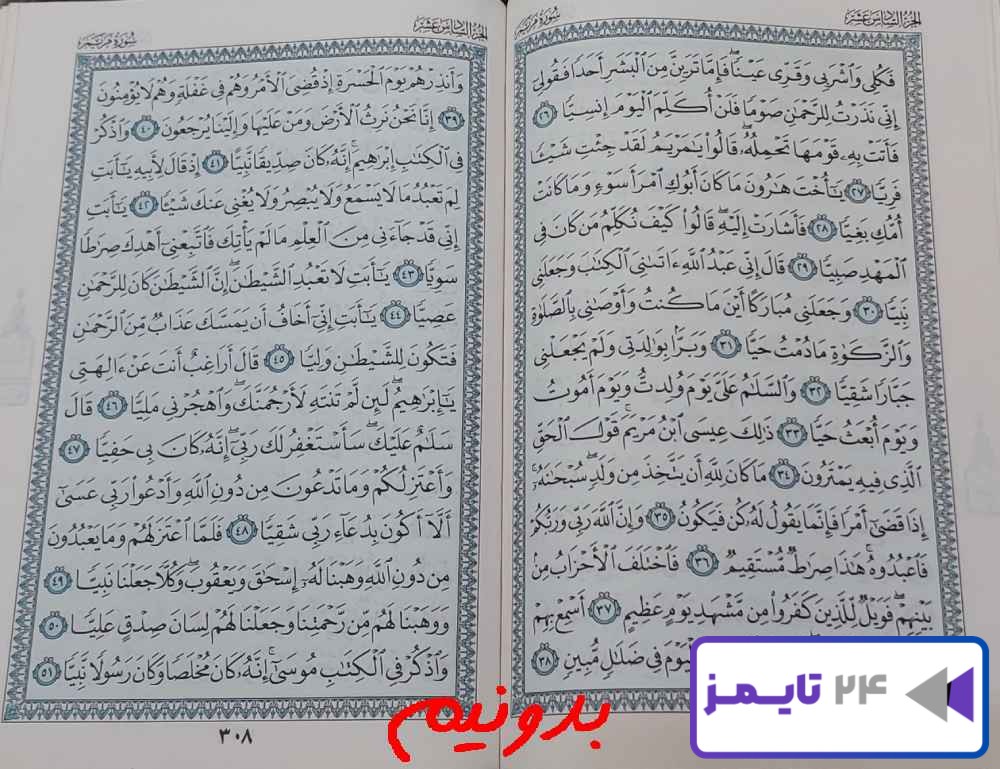 الجزء السادس عشر
سورة مريم
فَكُلِى وَٱشْرَبِى وَقَرِّى عَيْنًا ۖ فَإِمَّا تَرَيِنَّ مِنَ ٱلْبَشَرِ أَحَدًا فَقُولِىٓ
إِنِّى نَذَرْتُ لِلرَّحْمَٰنِ صَوْمًا فَلَنْ أُكَلِّمَ ٱلْيَوْمَ إِنسِيًّا ٢٦
فَأَتَتْ بِهِۦ قَوْمَهَا تَحْمِلُهُۥ ۖ قَالُوا۟ يَٰمَرْيَمُ لَقَدْ جِئْتِ شَيْـًٔا
فَرِيًّا ٢٧ يَٰٓأُخْتَ هَٰرُونَ مَا كَانَ أَبُوكِ ٱمْرَأَ سَوْءٍ وَمَا كَانَتْ
أُمُّكِ بَغِيًّا ٢٨ فَأَشَارَتْ إِلَيْهِ ۖ قَالُوا۟ كَيْفَ نُكَلِّمُ مَن كَانَ فِى
ٱلْمَهْدِ صَبِيًّا ٢٩ قَالَ إِنِّى عَبْدُ ٱللَّهِ ءَاتَىٰنِىَ ٱلْكِتَٰبَ وَجَعَلَنِى
نَبِيًّا ٣٠ وَجَعَلَنِى مُبَارَكًا أَيْنَ مَا كُنتُ وَأَوْصَٰنِى بِٱلصَّلَوٰةِ
وَٱلزَّكَوٰةِ مَا دُمْتُ حَيًّا ٣١ وَبَرًّۢا بِوَٰلِدَتِى وَلَمْ يَجْعَلْنِى
جَبَّارًا شَقِيًّا ٣٢ وَٱلسَّلَٰمُ عَلَىَّ يَوْمَ وُلِدتُّ وَيَوْمَ أَمُوتُ
وَيَوْمَ أُبْعَثُ حَيًّا ٣٣ ذَٰلِكَ عِيسَى ٱبْنُ مَرْيَمَ ۚ قَوْلَ ٱلْحَقِّ
ٱلَّذِى فِيهِ يَمْتَرُونَ ٣٤ مَا كَانَ لِلَّهِ أَن يَتَّخِذَ مِن وَلَدٍ ۖ سُبْحَٰنَهُۥٓ ۚ
إِذَا قَضَىٰٓ أَمْرًا فَإِنَّمَا يَقُولُ لَهُۥ كُن فَيَكُونُ ٣٥ وَإِنَّ ٱللَّهَ رَبِّى وَرَبُّكُمْ
فَٱعْبُدُوهُ ۚ هَٰذَا صِرَٰطٌ مُّسْتَقِيمٌ ٣٦ فَٱخْتَلَفَ ٱلْأَحْزَابُ مِنۢ
بَيْنِهِمْ ۖ فَوَيْلٌ لِّلَّذِينَ كَفَرُوا۟ مِن مَّشْهَدِ يَوْمٍ عَظِيمٍ ٣٧ أَسْمِعْ بِهِمْ
ٱلْيَوْمَ فِى ضَلَٰلٍ مُّبِينٍ ٣٨
الجزء السادس عشر
سورة مريم
وَأَنذِرْهُمْ يَوْمَ ٱلْحَسْرَةِ إِذْ قُضِىَ ٱلْأَمْرُ وَهُمْ فِى غَفْلَةٍ وَهُمْ لَا يُؤْمِنُونَ
٣٩ إِنَّا نَحْنُ نَرِثُ ٱلْأَرْضَ وَمَنْ عَلَيْهَا وَإِلَيْنَا يُرْجَعُونَ ٤٠ وَٱذْكُرْ
فِى ٱلْكِتَٰبِ إِبْرَٰهِيمَ ۚ إِنَّهُۥ كَانَ صِدِّيقًا نَّبِيًّا ٤١ إِذْ قَالَ لِأَبِيهِ يَٰٓأَبَتِ
لِمَ تَعْبُدُ مَا لَا يَسْمَعُ وَلَا يُبْصِرُ وَلَا يُغْنِى عَنكَ شَيْـًٔا ٤٢ يَٰٓأَبَتِ
إِنِّى قَدْ جَآءَنِى مِنَ ٱلْعِلْمِ مَا لَمْ يَأْتِكَ فَٱتَّبِعْنِىٓ أَهْدِكَ صِرَٰطًا
سَوِيًّا ٤٣ يَٰٓأَبَتِ لَا تَعْبُدِ ٱلشَّيْطَٰنَ ۖ إِنَّ ٱلشَّيْطَٰنَ كَانَ لِلرَّحْمَٰنِ
عَصِيًّا ٤٤ يَٰٓأَبَتِ إِنِّىٓ أَخَافُ أَن يَمَسَّكَ عَذَابٌ مِّنَ ٱلرَّحْمَٰنِ
فَتَكُونَ لِلشَّيْطَٰنِ وَلِيًّا ٤٥ قَالَ أَرَاغِبٌ أَنتَ عَنْ ءَالِهَتِى
يَٰٓإِبْرَٰهِيمُ ۖ لَئِن لَّمْ تَنتَهِ لَأَرْجُمَنَّكَ ۖ وَٱهْجُرْنِى مَلِيًّا ٤٦ قَالَ
سَلَٰمٌ عَلَيْكَ ۖ سَأَسْتَغْفِرُ لَكَ رَبِّىٓ ۖ إِنَّهُۥ كَانَ بِى حَفِيًّا ٤٧
وَأَعْتَزِلُكُمْ وَمَا تَدْعُونَ مِن دُونِ ٱللَّهِ وَأَدْعُوا۟ رَبِّى عَسَىٰٓ
أَلَّآ أَكُونَ بِدُعَآءِ رَبِّى شَقِيًّا ٤٨ فَلَمَّا ٱعْتَزَلَهُمْ وَمَا يَعْبُدُونَ
مِن دُونِ ٱللَّهِ وَهَبْنَا لَهُۥٓ إِسْحَٰقَ وَيَعْقُوبَ ۖ وَكُلًّا جَعَلْنَا نَبِيًّا ٤٩
وَوَهَبْنَا لَهُم مِّن رَّحْمَتِنَا وَجَعَلْنَا لَهُمْ لِسَانَ صِدْقٍ عَلِيًّا ٥٠
وَٱذْكُرْ فِى ٱلْكِتَٰبِ مُوسَىٰٓ ۚ إِنَّهُۥ كَانَ مُخْلَصًا وَكَانَ رَسُولًا نَّبِيًّا ٥١
٣٠٨
بدونیم
۲۴ تایمز